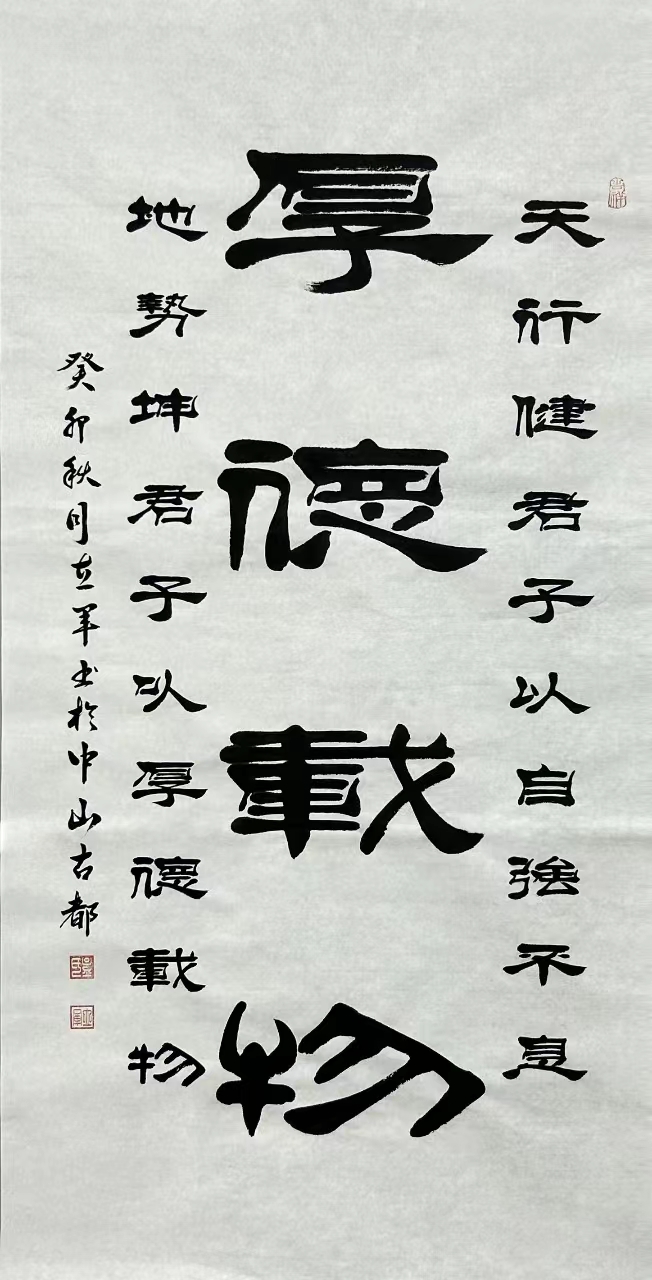 天行健君子以自強不息
厚德載物
地勢坤君子以厚德載物
癸卯秋月立军书於中山古都